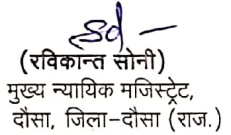 Sd -
(रविकान्त सोनी)
मुख्य न्यायिक मजिस्ट्रेट,
दौसा, जिला-दौसा (राज.)